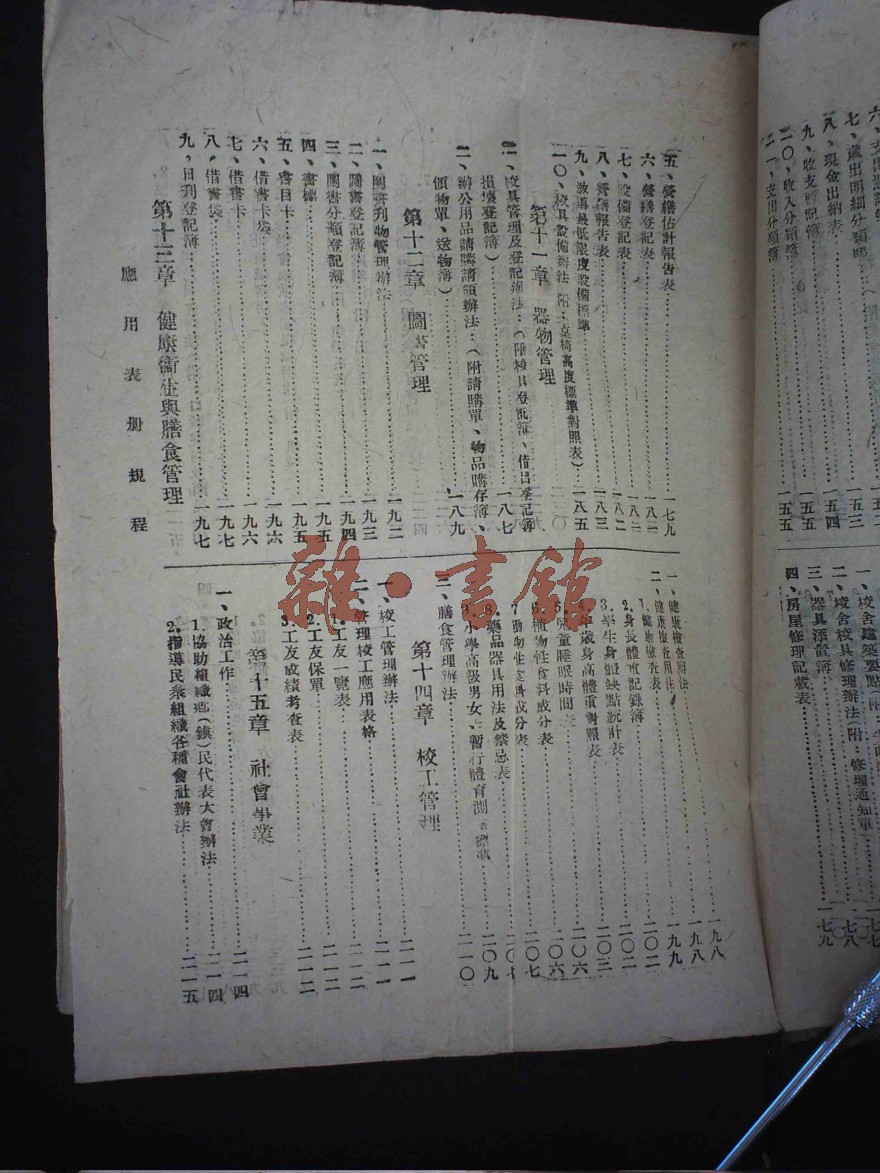 七、歲出明細分類
八、現金出納表
九、收支暫記簿
二〇、收入分類簿
二一、支出分類簿
四、房屋修理記載表……一七九
三、器具添置簿
二、校舍校具修理辦法(附:修理通知單)
五、營繕估計報告表……一七九
六、營繕登記表
七、設備登記表……一八二
八、營繕報告表……一八三
九、教導最低限度設備標準……一八五
一〇、校具設備辦法(附:桌椅高度標準對照表)
第十一章 器物管理
校具管理及登記辦法…(附校具登記簿、借出登記簿
損壞登記簿)……一八七
二、辦公用品請購請領辦法…(附請購單、物品購存簿、
領物單、送物簿)……一八九
第十二章 圖書管理
一、圖書刊物管理辦法……一九二
二、圖書登記簿……一九三
三、圖書分類登記簿……一九四
四、書標……一九五
五、書目卡……一九五
六、借書卡袋……一九六
七、借書卡……一九六
八、借書袋……一九七
九,日刊登記簿……一九七
第十三章 健康衞生與膳食管理
應用表册規程
一、健康檢查辦法……一九八
二、健康檢查用法……一九八
1.健康檢查表……一九九
2.身長體重記錄簿……二〇二
3.學生身體缺點統計表……二〇二
4.年歲身高體重對照表……二〇三
5.兒童睡眠時間表……二〇六
6.植物性食料成分表……二〇六
7動物性食料成分表……二〇七
8.藥品器具用法及禁忌表……二〇七
9.小學高級男女生暫行體育測驗標準……二〇九
三、膳食管理辦法……二一〇
第十四章 校工管理
一、校工管理辦法……二一一
二、管理校工應用表格……二一二
1.工友一覽表……二一二
2.工友保單……二一二
3.工友成績考查表……二一二
第十五章 社會事業
一、政治工作……二一四
1.協助組織鄉(鎮)民代表大會辦法……二一四
2.指導民衆組織各種會社辦法……二一五
雜·書館